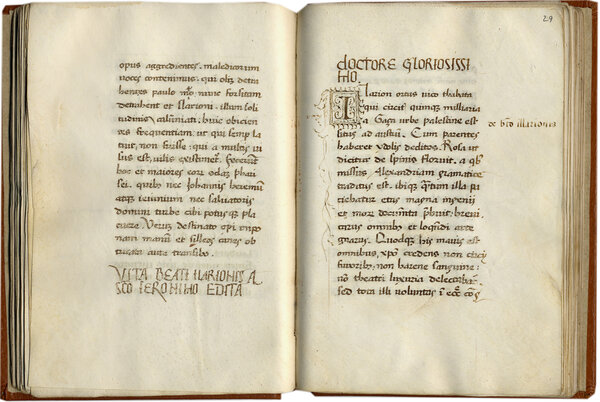 opus aggredientes. maledicorum
uoces contemnimus. qui olim detra
hentes paulo m̄o nunc forsitan
detrahent et ilarioni. illum soli
tudinis calumniati. huic obicien
tes frequentiam. ut qui semp̄ la
tuit, non fuisse. qui a multis ui
sus est, uilis existimetᷣ. fecerunt
hoc et maiores eorum odaʒ phari
sei. quibʒ nec Johannis heremū
atqʒ ieiunium nec saluatoris
domini turbe cibi potus qʒ pla
cuere. Verum destinato opi impo
nam manū et sillẹos canes ob
turata aure transibo.
VITA BEATI ILARIONIS A
SCO IERONIMO EDITA
29
DOCTORE GLORIOSISSI
MO.
Ilarion ortus uico thabata
qui circit̄ quinqʒ milliaria
a Gaza urbe palestine est
situs ad austrū. Cum parentes
haberet ydolis deditos. Rosa ut
dicitur de spinis floruit. a qbʒ
missus Alexandriam gramatice
traditus est. ibiqʒ q̄tum illa pa
tiebatur etas magna ingenii
et mor̄ documta p̄buit: breui
carus omnibʒ et loqn̄di arte
gnarus. Quodqʒ his maius est
omnibus, xp̄o credens non circi
furoribʒ, non harene sanguine:
nō theatri luxuria delectabat᷑.
sed tota illi uoluntas in ecc̄e
de bt̄o illarione